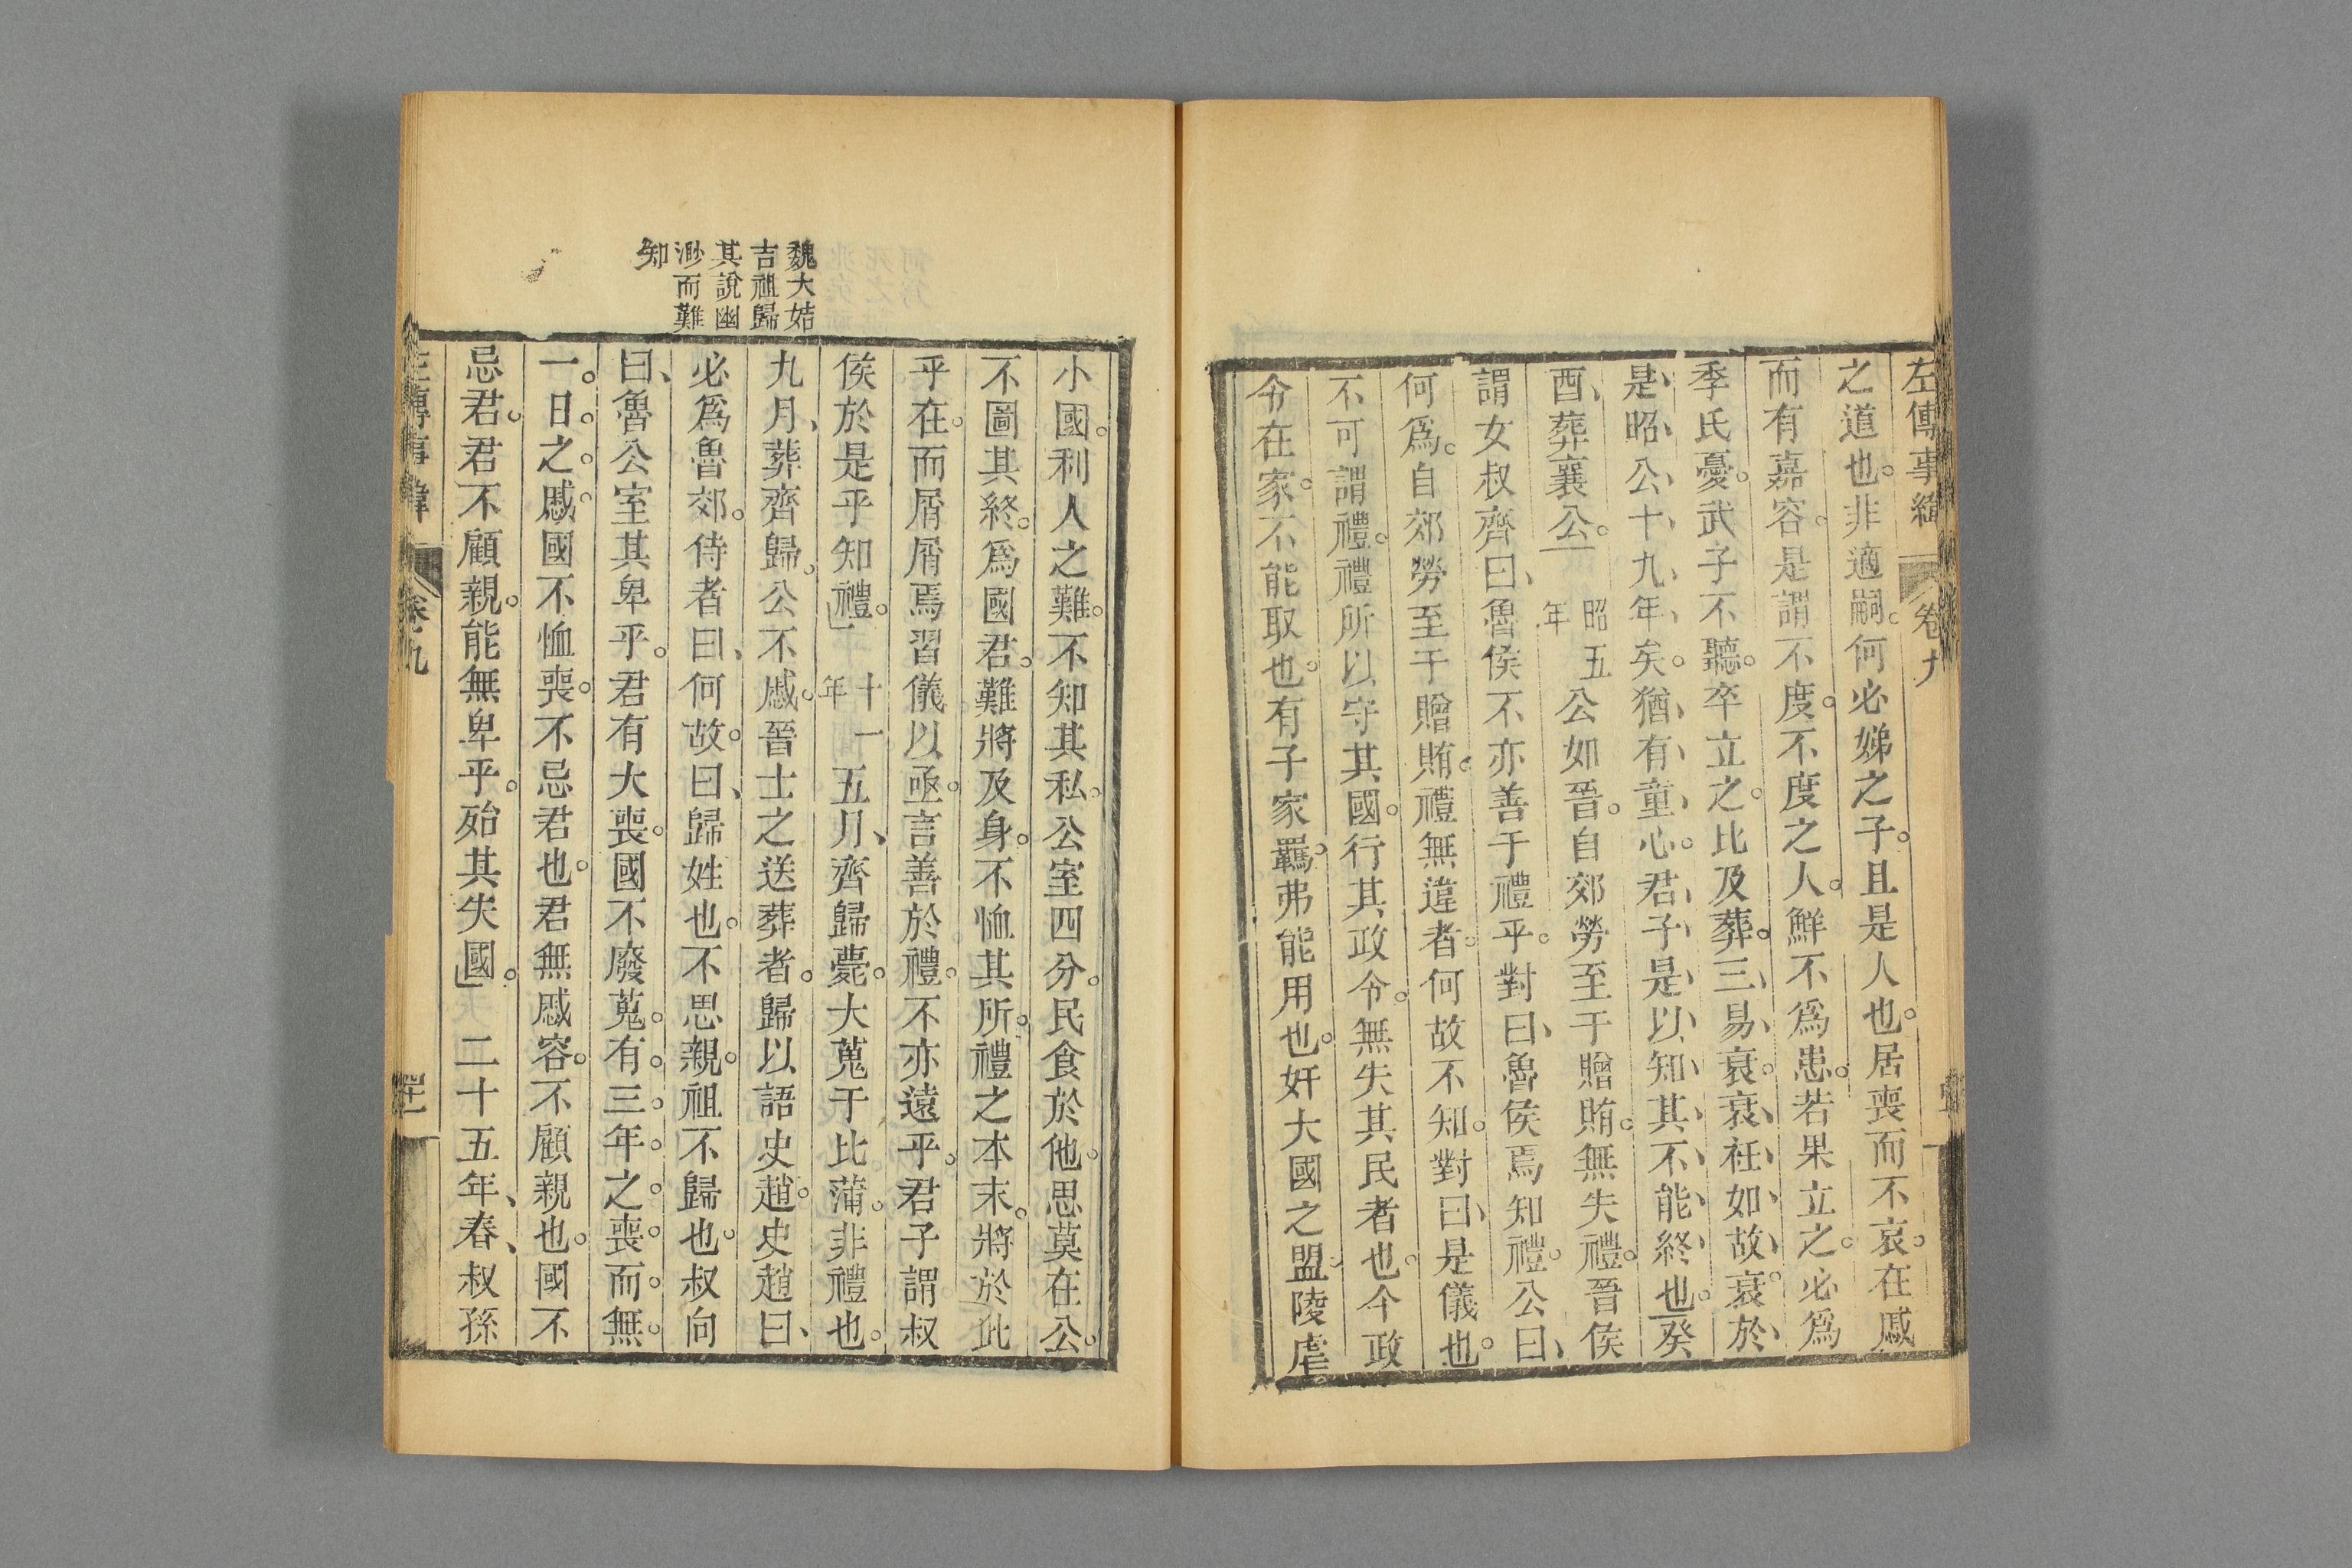 左傳事緯 卷九
之道也。非適嗣。何必娣之子。且是人也。居喪而不哀。在慼
而有嘉容。是謂不度。不度之人。鮮不爲患。若果立之。必爲
季氏憂。武子不聽。卒立之。比及葬。三易衰。衰衽如故衰。於
是昭公十九年矣。猶有童心。君子是以知其不能終也。癸
酉、葬襄公。 昭五年 公如晉。自郊勞至于贈賄。無失禮。晉侯
謂女叔齊曰、魯侯不亦善于禮乎。對曰、魯侯焉知禮。公曰、
何爲。自郊勞至于贈賄。禮無違者。何故不知。對曰、是儀也。
不可謂禮。禮所以守其國。行其政令。無失其民者也。今政
令在家。不能取也。有子家羈。弗能用也。奸大國之盟。陵虐
小國。利人之難。不知其私。公室四分。民食於他。思莫在公。
不圖其終。爲國君。難將及身。不恤其所。禮之本末。將於此
乎在。而屑屑焉習儀以亟。言善於禮。不亦遠乎。君子謂叔
侯於是乎知禮。 十一年 五月、齊歸薨。大蒐于比蒲。非禮也。
九月、葬齊歸。公不慼。晉士之送葬者。歸以語史趙。史趙曰、
必爲魯郊。侍者曰、何故。曰、歸姓也。不思親。祖不歸也。叔向
曰、魯公室其卑乎。君有大喪。國不廢蒐。有三年之喪。而無
一日之慼。國不恤喪。不忌君也。君無慼容。不顧親也。國不
忌君。君不顧親。能無卑乎。殆其失國。 二十五年、春、叔孫
左傳事緯 卷九
魏大姞
吉祖歸
其說幽
渺而難
知